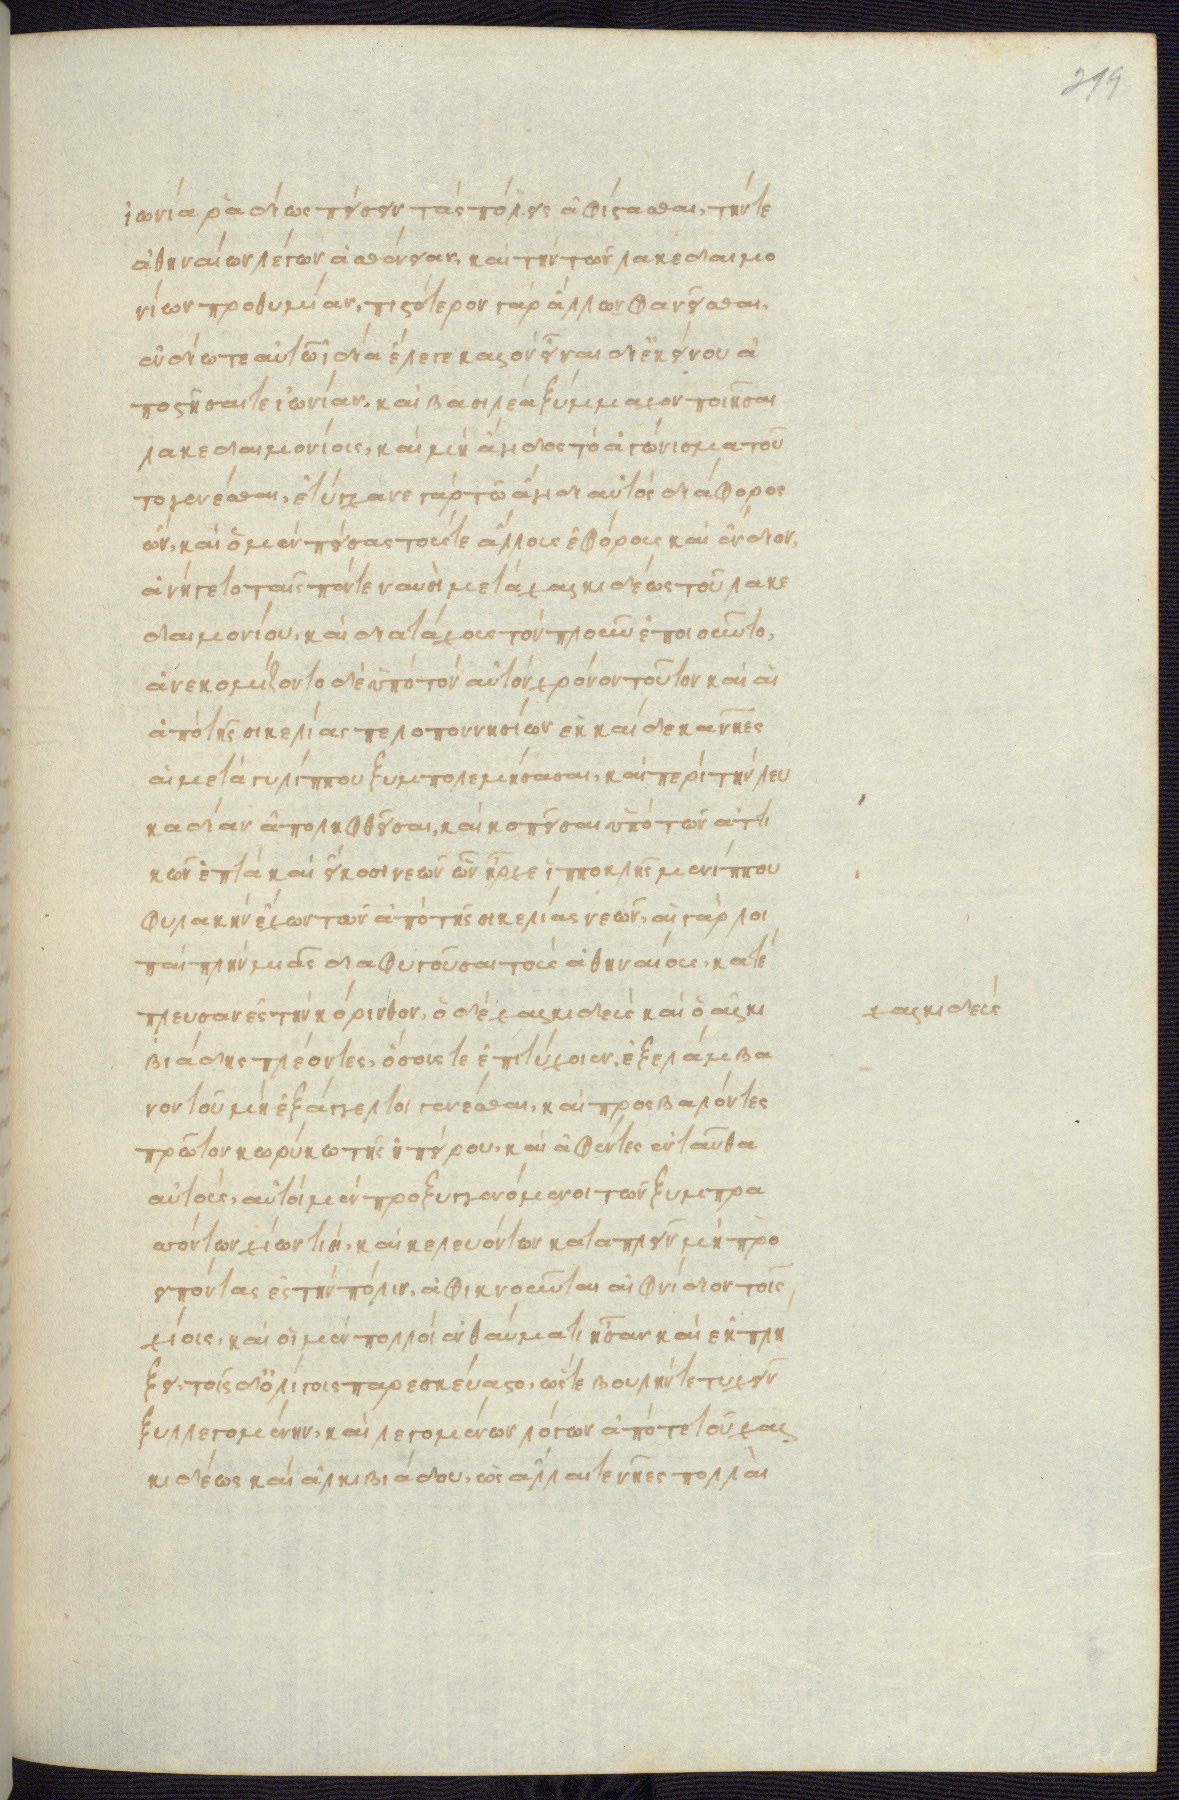 299
ἰωνία ῥαδίως πείσειν τὰς πόλεις ἀφίστασθαι, τήν τε
ἀθηναίων λέγων ἀσθένειαν, καὶ τὴν τῶν λακεδαιμο
νίων προθυμίαν, πιστότερον γὰρ ἄλλων φανεῖσθαι.
ἐνδίω τε αὐτῶ ἰδία ἔλεγε καλὸν εἶναι δι' ἐκείνου ἀ
ποστῆσαί τε ἰωνίαν, καὶ βασιλέα ξύμμαχον ποιῆσαι
λακεδαιμονίοις, καὶ μὴ ἄγιδος τὸ ἀγώνισμα τοῦ
το γενέσθαι, ἐτύγχανε γὰρ τῶ ἄγιδι αὐτὸς διάφορος
ὤν, καὶ ὁ μὲν πείσας τούς τε ἄλλους ἐφόρους καὶ ἔνδιον,
ἀνήγετο ταῖς πέντε ναυσὶ μετὰ χαλκιδέως τοῦ λακε
δαιμονίου, καὶ διὰ τάχους τὸν πλοῦν ἐποιοῦντο,
ἀνεκομίζοντο δὲ ὑπὸ τὸν αὐτὸν χρόνον τοῦτον καὶ αἱ
ἀπὸ τῆς σικελίας πελοποννησίων ἑκκαίδεκα νῆες
αἱ μετὰ γυλίππου ξυμπολεμήσασαι, καὶ περὶ τὴν λευ
καδίαν ἀποληφθεῖσαι, καὶ κοπεῖσαι ὑπὸ τῶν ἀττι
κῶν ἑπτὰ καὶ εἴκοσι νεῶν ὧν ἦρχε ἱπποκλῆς μενίππου
φυλακὴν ἔχων τῶν ἀπὸ τῆς σικελίας νεῶν, αἱ γὰρ λοι
παὶ πλὴν μιᾶς διαφυγοῦσαι τοὺς ἀθηναίους, κατέ
πλευσαν ἐς τὴν κόρινθον, ὁ δὲ χαλκιδεὺς καὶ ὁ ἀλκι
βιάδης πλέοντες, ὅσοις τε ἐπιτύχοιεν, ἐξελάμβα
νον τοῦ μὴ ἐξάγγελτοι γενέσθαι, καὶ προσβαλόντες
πρῶτον κωρύκω τῆς ἠπείρου, καὶ ἀφέντες ἐνταῦθα
αὐτούς, αὐτοὶ μὲν προξυγγενόμενοι τῶν ξυμπρα
σσόντων χίων τισὶ, καὶ κελευόντων καταπλεῖν μὴ προ
ειπόντας ἐς τὴν πόλιν, ἀφικνοῦνται αἰφνίδιον τοῖς
χίοις, καὶ οἱ μὲν πολλοὶ ἐν θαύματι ἦσαν καὶ ἐκπλή
ξει, τοῖς δ' ὀλίγοις παρεσκεύαστο, ὥστε βουλήν τε τυχεῖν
ξυλλεγομένην, καὶ λεγομένων λόγων ἀπό τε τοῦ χαλ
κιδέως καὶ ἀλκιβιάδου, ὡς ἄλλαι τε νῆες πολλαὶ
χαλκιδεύς